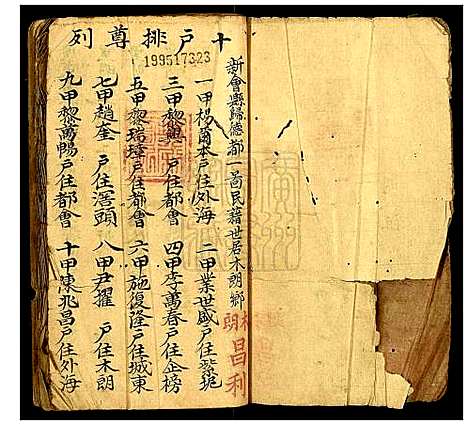 十戶排尊列
199517323
新會縣歸德都一啚民籍世居木朗鄉
一甲楊爾本戶住外海
二甲業世盛戶住紫坭
三甲黎興戶住都會
四甲李萬春戶住企榜
五甲黎瑞璋戶住都會
六甲施復隆戶住城東
七甲趙奎戶住滘頭
八甲尹擢戶住木朗
九甲黎萬暢戶住都會
十甲陳兆昌戶住外海
木朗
昌利